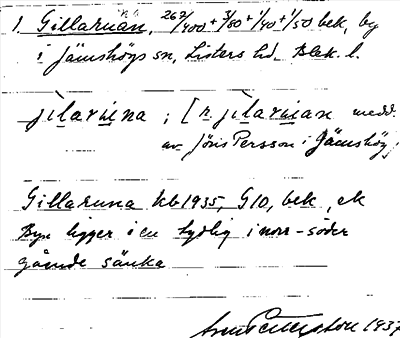 1. Gillaruän, 262/400 + 3/80 + 1/40 + 1/50 bek, by
i Jämshögs sn, Listers hd. Blek. l.
jilaruna ; [n. jilaruan medd.
av Jöns Persson i Jämshög;
Gillaruna kb 1935, G10, bek, ek
Byn ligger i en tydlig i norr-söder
gående sänka
1937